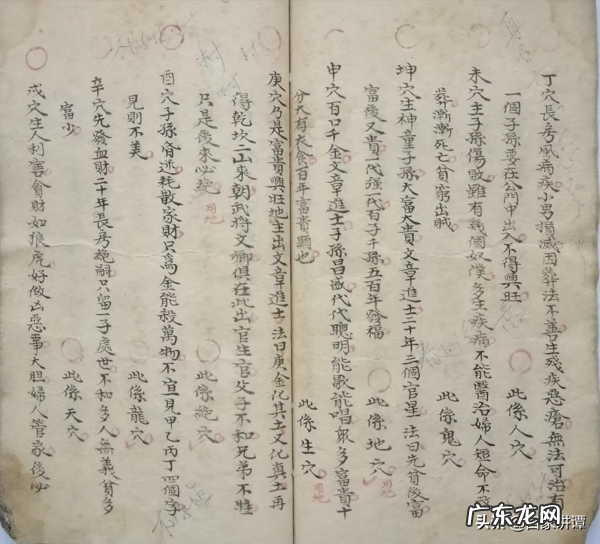 丁穴長房風病疾小男損滅因葬法不善生殘疾惡瘡無法可治有
一個子孫要在公門中出入不得興旺
此係人穴
未穴主子孫傷敗雖有幾個奴僕多主疾病不能醫治婦人短命不
葬漸漸死亡貧窮出賊
此係鬼穴
坤穴生神童子孫大富大貴文章進士三十年三個官星 法曰先貧後富
富後又貴一代強一代百子千孫五百年發福
此係地穴
用地
申穴百口千金文章進士子孫昌盛代代聰明能歌能唱眾多富貴十
分大有衣食百年富貴顯也
此係生穴
用地
庚穴乃是富貴興旺地主出文章進士 法曰庚金化其土又化真土再
得乾坎二山來朝武將文卿俱在此出官生官父子不和兄弟不睦
只是後來必絕
用地
此係絕穴
酉穴子孫昏迷耗散家財只為金能殺萬物不宜見甲乙丙丁四個字
見則不美
此係龍穴
辛穴先發血財二十年長房絕嗣只留一子處世不和多人無義貧多
富少
此係天穴
戌穴生人利害會財如狼虎好做凶惡事大胆婦人管家後必
广东龙网
头条@百家讲谭